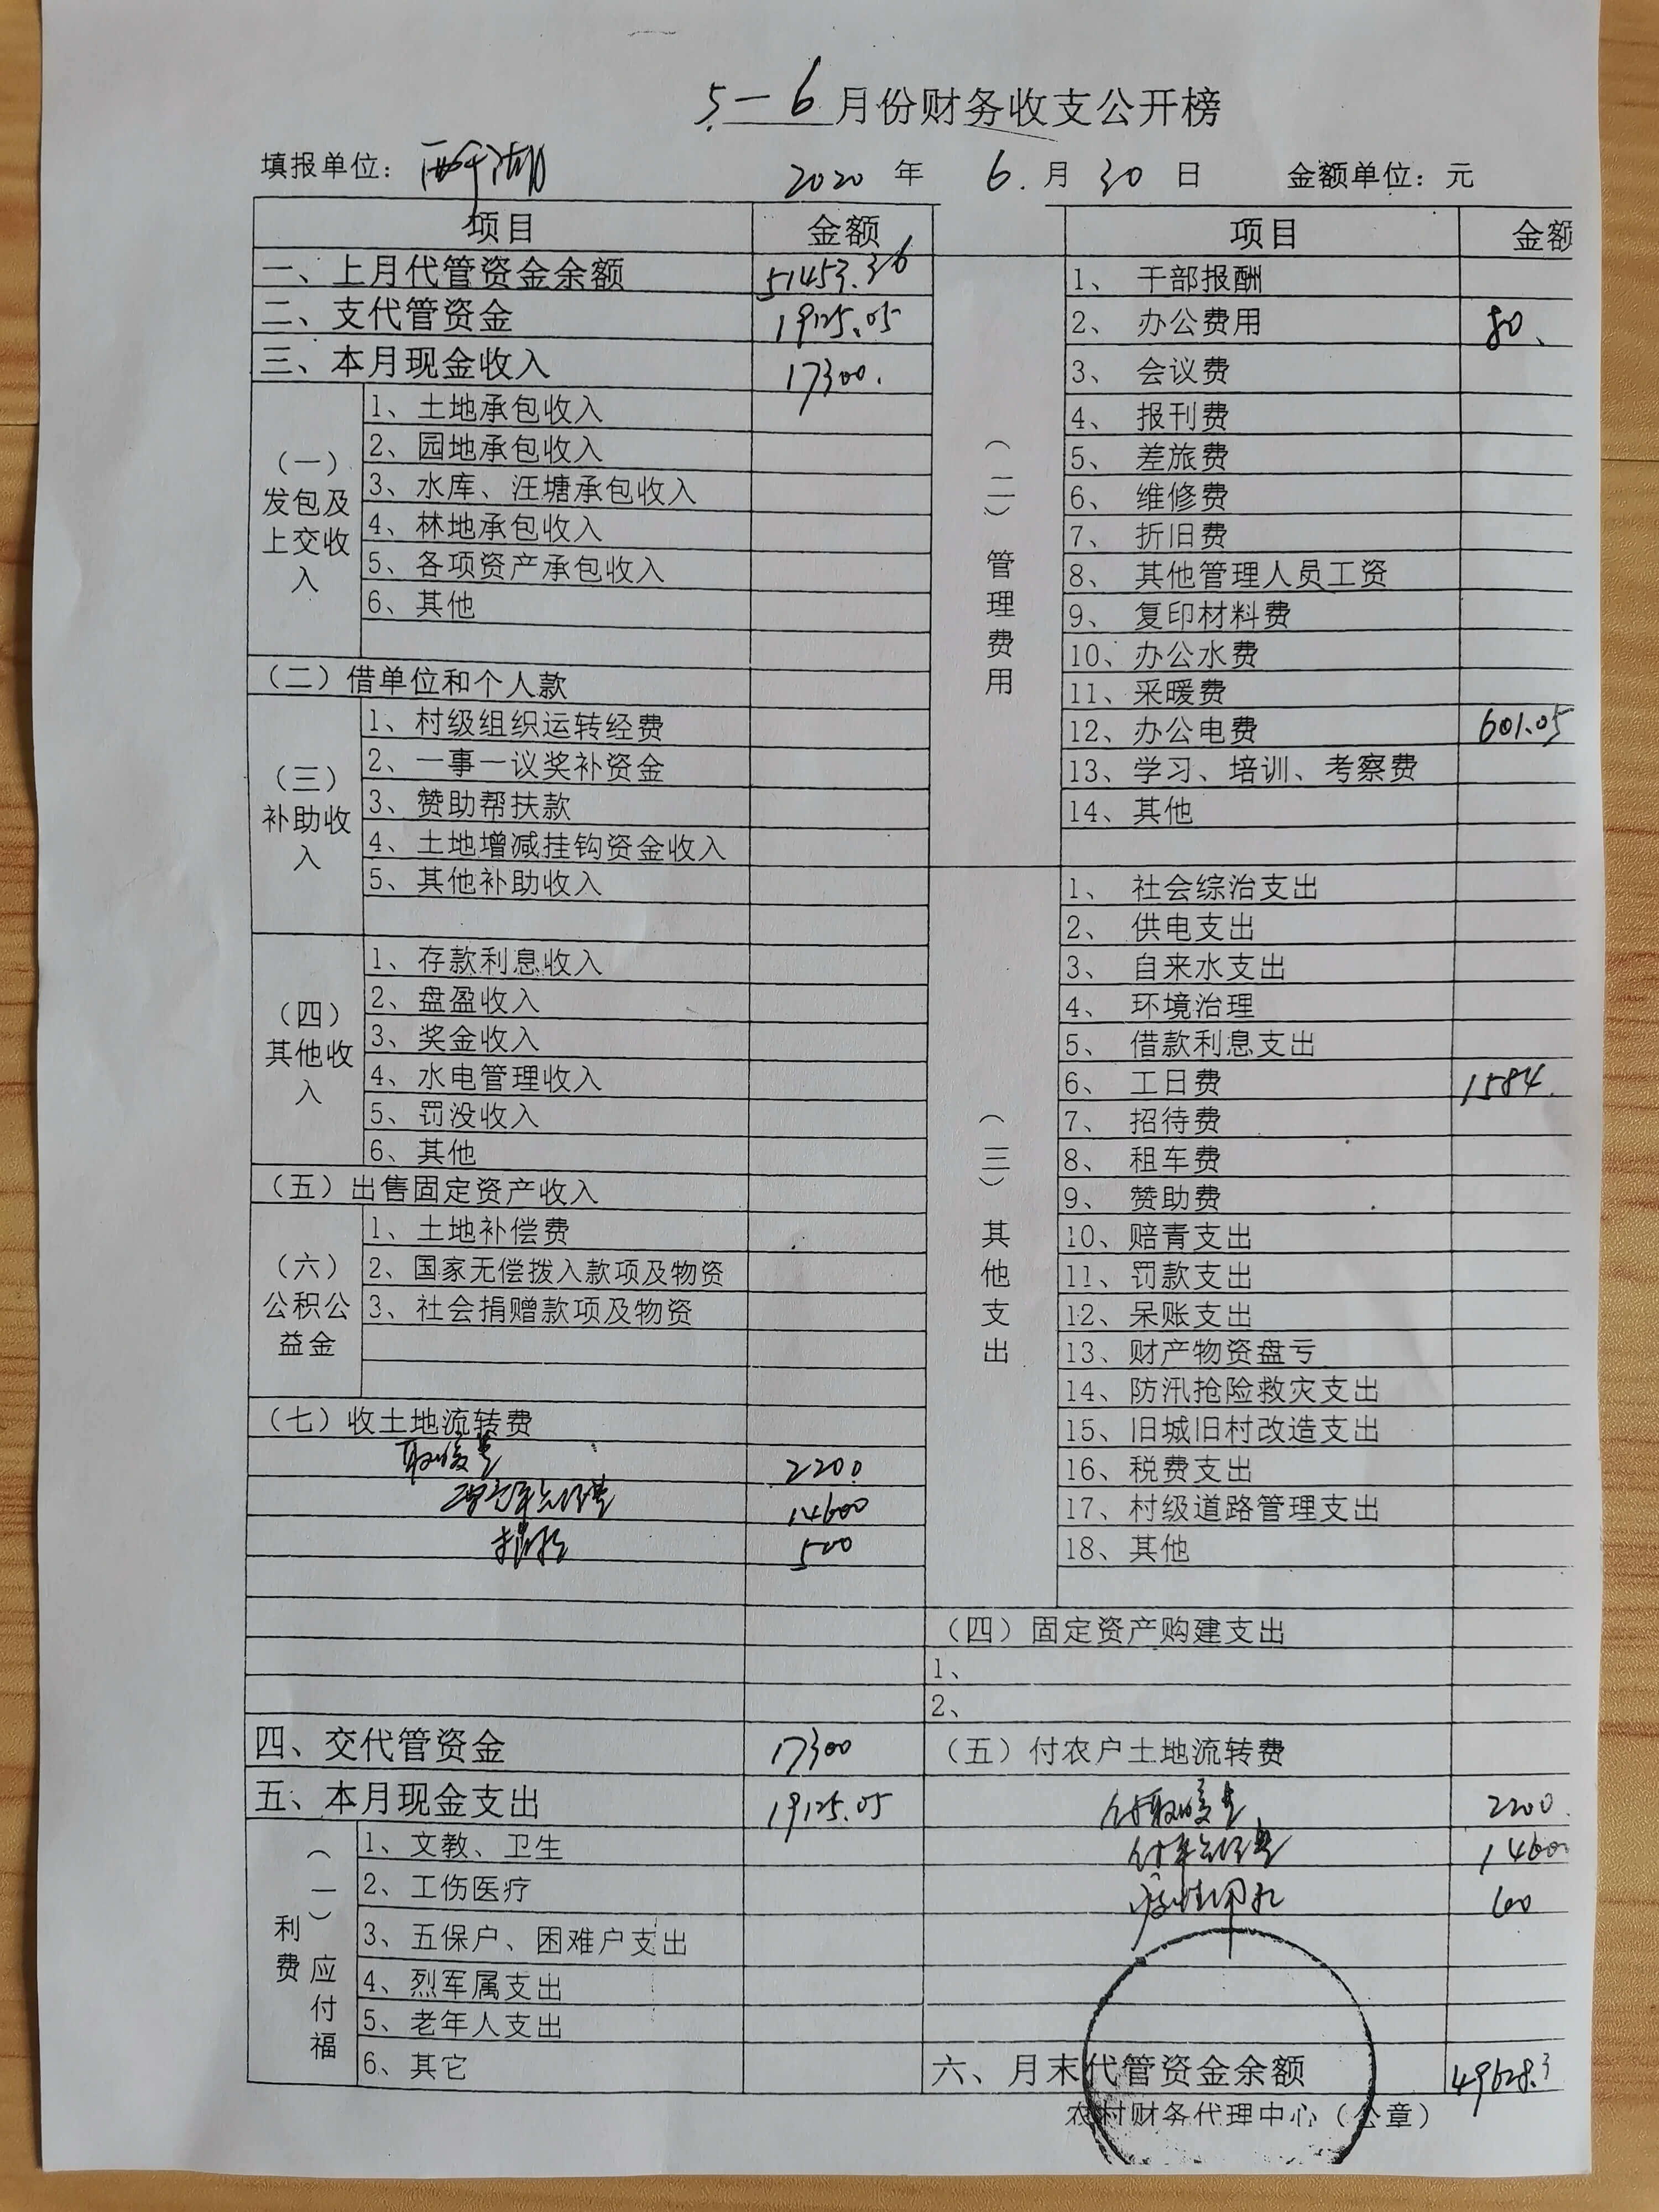 5-6月份财务收支公开榜
填报单位: 2020 年 6.月 30 日 金额单位: 元
项目 金额
一、上月代管资金余额 51453.36
二、支代管资金 19125.05
三、本月现金收入 17300.
（一）发包及上交收入
1、土地承包收入
2、园地承包收入
3、水库、汪塘承包收入
4、林地承包收入
5、各项资产承包收入
6、其他
（二）借单位和个人款
（三）补助收入
1、村级组织运转经费
2、一事一议奖补资金
3、赞助帮扶款
4、土地增减挂钩资金收入
5、其他补助收入
（四）其他收入
1、存款利息收入
2、盘盈收入
3、奖金收入
4、水电管理收入
5、罚没收入
6、其他
（五）出售固定资产收入
（六）公积公益金
1、土地补偿费
2、国家无偿拨入款项及物资
3、社会捐赠款项及物资
（七）收土地流转费
取暖费 2200
14600
500
四、交代管资金 17300
五、本月现金支出 19125.05
（一）应付福利费
1、文教、卫生
2、工伤医疗
3、五保户、困难户支出
4、烈军属支出
5、老年人支出
6、其它
项目 金额
（二）管理费用
1、 干部报酬
2、 办公费用 80.
3、 会议费
4、 报刊费
5、 差旅费
6、 维修费
7、 折旧费
8、 其他管理人员工资
9、 复印材料费
10、办公水费
11、采暖费
12、办公电费 601.05
13、学习、培训、考察费
14、其他
（三）其他支出
1、 社会综治支出
2、 供电支出
3、 自来水支出
4、 环境治理
5、 借款利息支出
6、 工日费 1584.
7、 招待费
8、 租车费
9、 赞助费
10、赔青支出
11、罚款支出
12、呆账支出
13、财产物资盘亏
14、防汛抢险救灾支出
15、旧城旧村改造支出
16、税费支出
17、村级道路管理支出
18、其他
（四）固定资产购建支出
1、
2、
（五）付农户土地流转费
付取暖费 2200.
14600
60
六、月末代管资金余额 49628.3
农村财务代理中心（公章）